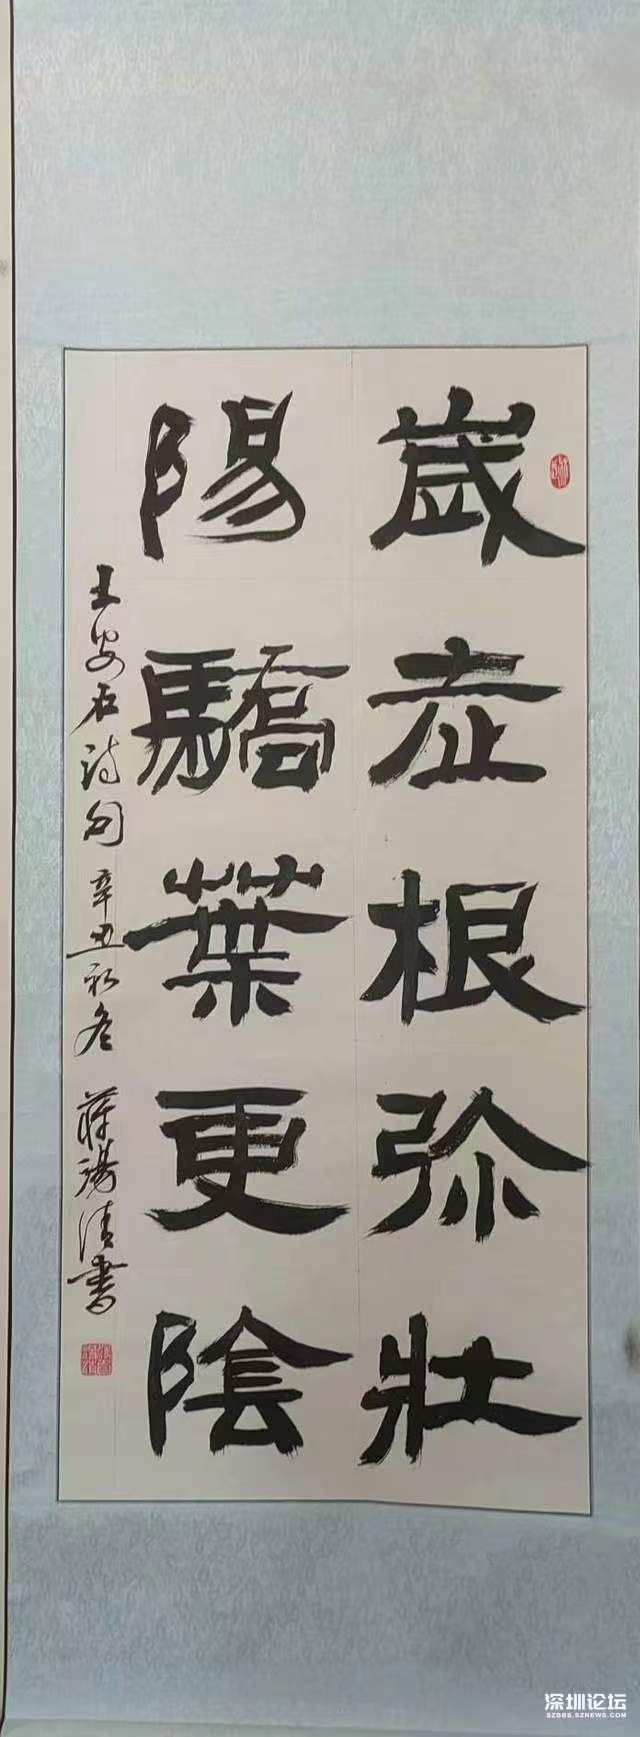 歲老根弥壯
陽驕葉更陰
王安石诗句 辛丑初冬 蔣湯清書
深圳论坛
SZBBS.SZNEWS.COM